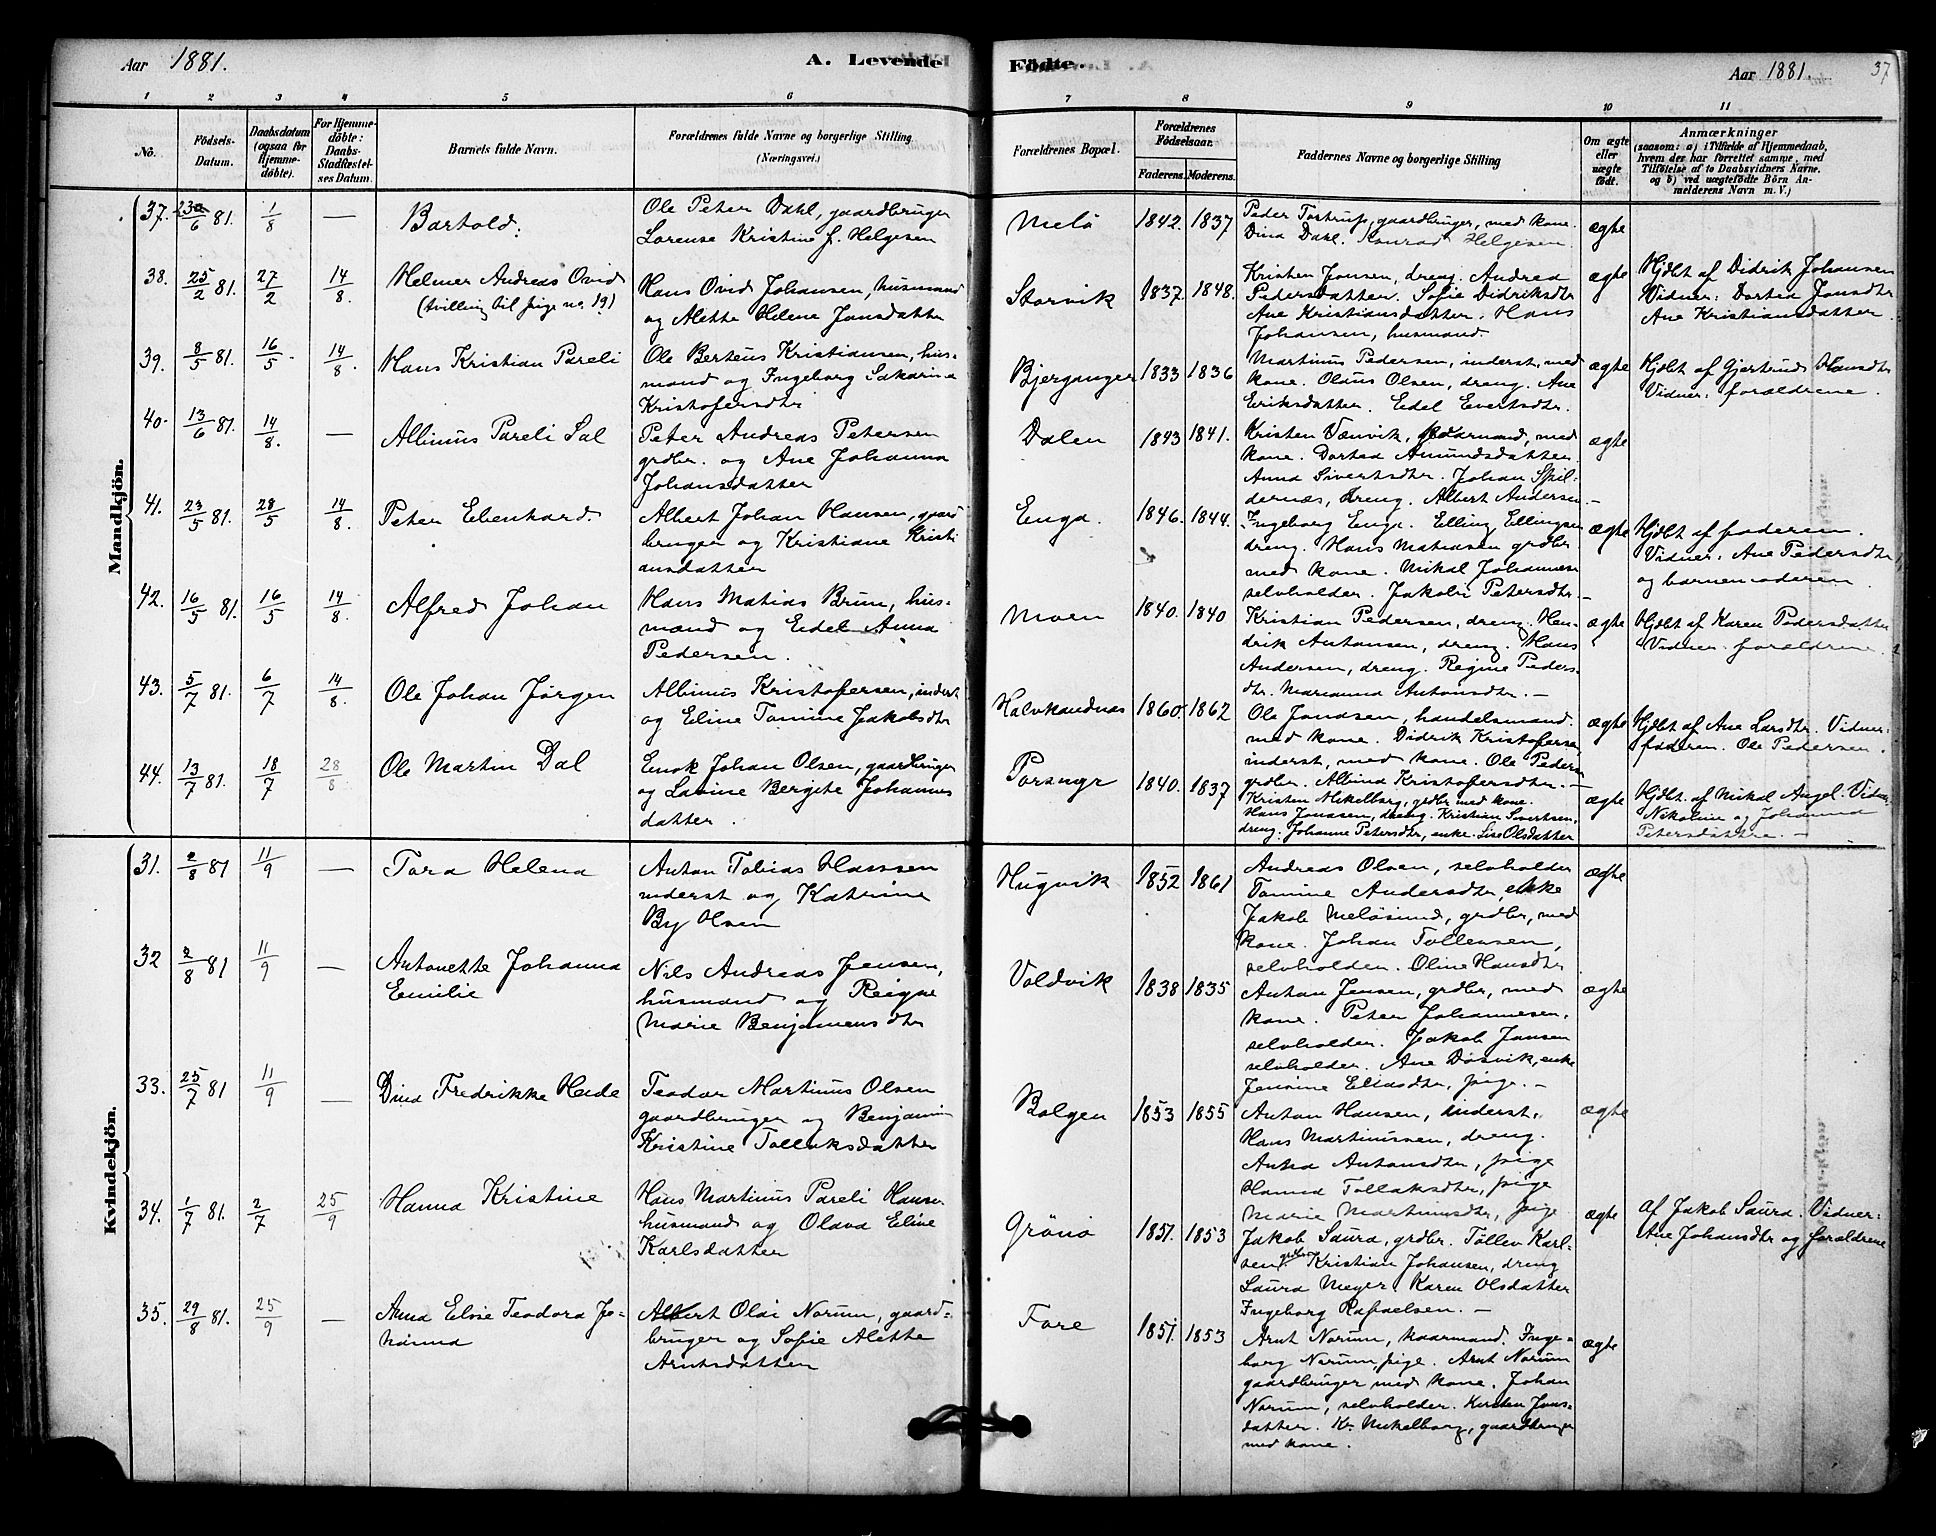 Aar 1881.
A. Levende
Födte.
Aar 1881.
37
1 2 3 4 5 6 7 8 9 10 11
No.
Födsels-
Datum.
Daabsdatum
(ogsaa för
Hjemme-
döbte).
For Hjemme-
döbte:
Daabs-
Stadfæstel-
ses Datum.
Barnets fulde Navn.
Forældrenes fulde Navne og borgerlige Stilling.
(Næringsvei.)
Forældrenes Bopæl.
Forældrenes
Födselsaar.
Faderens. Moderens.
Faddernes Navne og borgerlige Stilling
Om ægte
eller
uægte
födt.
Anmærkninger
(saasom: a) i Tilfælde af Hjemmedaab,
hvem der har forrettet samme, med
Tilföielse af to Daabsvidners Navne.
og b) ved uægtefödte Börn An-
melderens Navn m. V.)
Mandkjön.
37. 23/6 81. 1/8 — Bartold.
Ole Peter Dahl, gaardbruger
Lorense Kristine f. Helgesen
Melö 1842. 1837
Peder Tostrup, gaardbruger, med kone.
Dina Dahl. Konrad Helgesen
ægte
38. 25/2 81. 27/2 14/8. Helmer Andreas Ovid
(tvilling til pige no. 19)
Hans Ovid Johansen, husmand
og Alette Helene Jonsdatter
Storvik 1837. 1848.
Kristen Jonsen, dreng. Andrea
Pedersdatter. Sofie Didriksdtr
Ane Kristiansdatter. Hans
Johansen, husmand.
ægte
Hjdbt af Didrik Johansen
Vidner: Dortea Jonsdtr
Ane Kristiansdatter.
39. 8/5 81. 16/5. 14/8. Hans Kristian Pareli
Ole Berteus Kristiansen, hus-
mand og Ingeborg Sakarina
Kristofersdtr
Bjerganger 1833 1836
Martinus Pedersen, inderst, med
kone. Olaus Olsen, dreng. Ane
Eriksdatter. Edel Evertsdtr.
ægte
Hjdbt af Gjertrud Hansdtr
Vidner: forældrene.
40. 13/6 81. 14/8. — Albinus Pareli Sal
Peter Andreas Petersen
grdbr. og Ane Johanna
Johansdatter
Dalen 1843 1841.
Kristen Vænvik, med
kone. Dortea Amundsdatter.
Anna Sivertsdtr. Johan Spil-
dernæs, dreng. Albert Andersen. —
ægte
41. 23/5 81. 28/5 14/8. Peter Edenhard.
Albert Johan Hansen, gaard
bruger og Kristiane Kristi
ansdatter
Enga. 1846. 1844.
Ingeborg Enga. Elling Ellingsen
dreng. Hans Matiasen grdbr.
med kone. Mikal Johannese
selvholder. Jakobi Petersdtr. —
ægte
Hjdbt af faderen.
Vidner: Ane Pedersdtr
og barnemoderen.
42. 16/5 81. 16/5 14/8. Alfred Johan
Hans Matias Brun, hus-
mand og Edel Anna
Pedersen.
Moen 1840. 1840
Kristian Pedersen, dreng. Hen-
drik Antonsen, dreng. Hans
Andersen, dreng. Regine Peders-
dtr. Marianna Antonsdtr. —
ægte
Hjdbt af Karen Pedersdatter
Vidner: forældrene.
43. 5/7 81. 6/7 14/8. Ole Johan Jørgen
Albinus Kristofersen, inderst
og Eline Tomine Jakobsdtr
Halvkandnæs 1860. 1862
Ole Jonasen, handelsmand.
med kone. Didrik Kristofersen
inderst, med kone. Ole Pedersen
grdbr. Albina Kristofersdtr. —
ægte
Hjdbt af Ane Larsdtr. Vidner:
faderen. Ole Pedersen.
44. 13/7 81. 18/7 28/8. Ole Martin Dal
Enok Johan Olsen, gaardbruger
og Lavine Bergete Johannes
datter.
1840. 1837
Kristen Mikelborg, grdbr med kone.
Hans Jonassen, dreng. Kristian Sivertsen,
dreng. Johanna Petersdtr, enke. Lise Olsdatter
ægte
Hjdbt. af Mikal Angel. Vidner:
Nikoline og Johanna
Petersdattre. —
Kvindekjön.
31. 2/8 81 11/9 — Tora Helena
Anton Tobias Hanssen
inderst og Katrine
By Olsen
Hugvik 1852 1861
Andreas Olsen, selvholder
Tomine Andersdtr, enke
Jakob Meløsund, grdbr, med
kone. Johan Tollevsen,
selvholder. Oline Hansdtr
ægte
32 2/8 81 11/9 — Antonette Johanna
Emilie
Nils Andreas Jensen,
husmand og Reigne
Marie Benjamensdtr
Voldvik 1838 1835
Anton Jensen, grdbr, med
kone. Peter Johannesen.
selvholder. Jakob Jansen
selvholder. Ane Døsvik, enke
Jensine Eliasdtr, pige. —
ægte
33. 25/7 81 11/9 — Dina Fredrikke Heide
Teodor Martinus Olsen
gaardbruger og Benjamin
Kristine Tollaksdatter
Bolgen 1853 1855
Anton Hansen, inderst.
Hans Martinussen, dreng.
Anna Antonsdtr, pige
Hanna Tollaksdtr, pige
Marie Martinusdtr, pige
ægte
34. 1/7 81. 2/7 25/9 Hanna Kristine
Hans Martinus Pareli Hanse
husmand og Olava Eline
Karlsdatter
Grönö 1851. 1853
Jakob Saura, grdbr. Tollev Karl-
sen grdbr Kristian Johansen, dreng
Laura Meyer Karen Olsdatter
Ingeborg Rafaelsen. —
ægte
af Jakob Saura. Vidner:
Ane Johansdtr og forældrene
35. 29/8 81. 25/9 — Anna Elise Teodora Jo-
hanna
Albert Olai Norum, gaard-
bruger og Sofie Alette
Arntsdatter
Fore 1851. 1853
Arnt Norum, kaarmand. Inge-
borg Norum, pige. Arnt Norum
gaardbruger med kone. Johan
Norum, selvholder. Kirsten Jons-
datter. Kr. Mikelborg, gaardbruger
med kone.
ægte